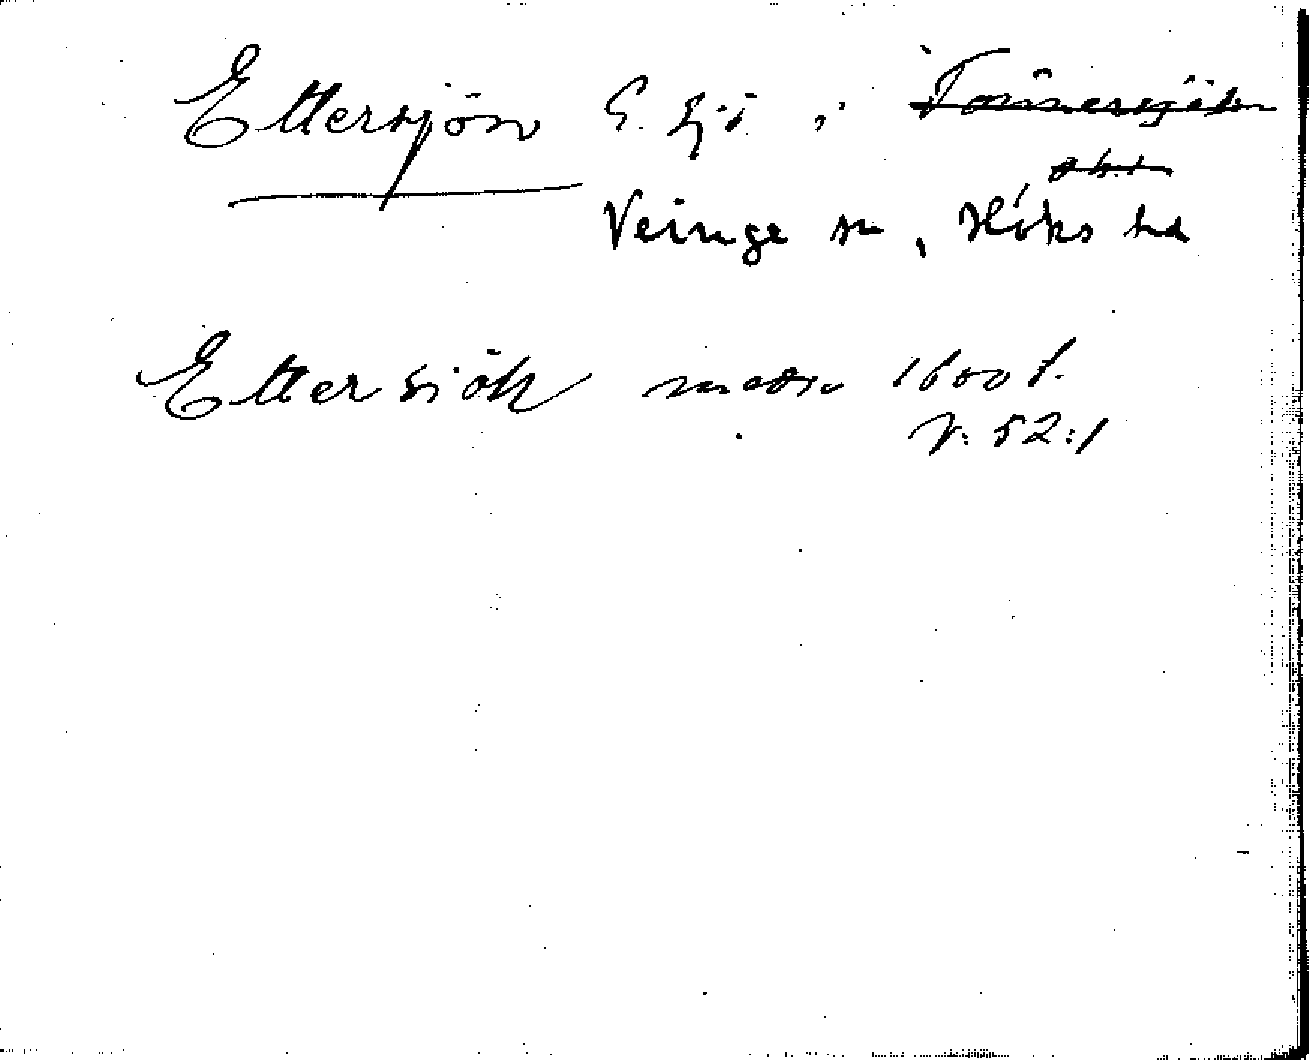 Ettersjön sjö i Tönnersjö
Veinge sn, Höks hd
Ettersiöh 1600 t.
V: 52:1